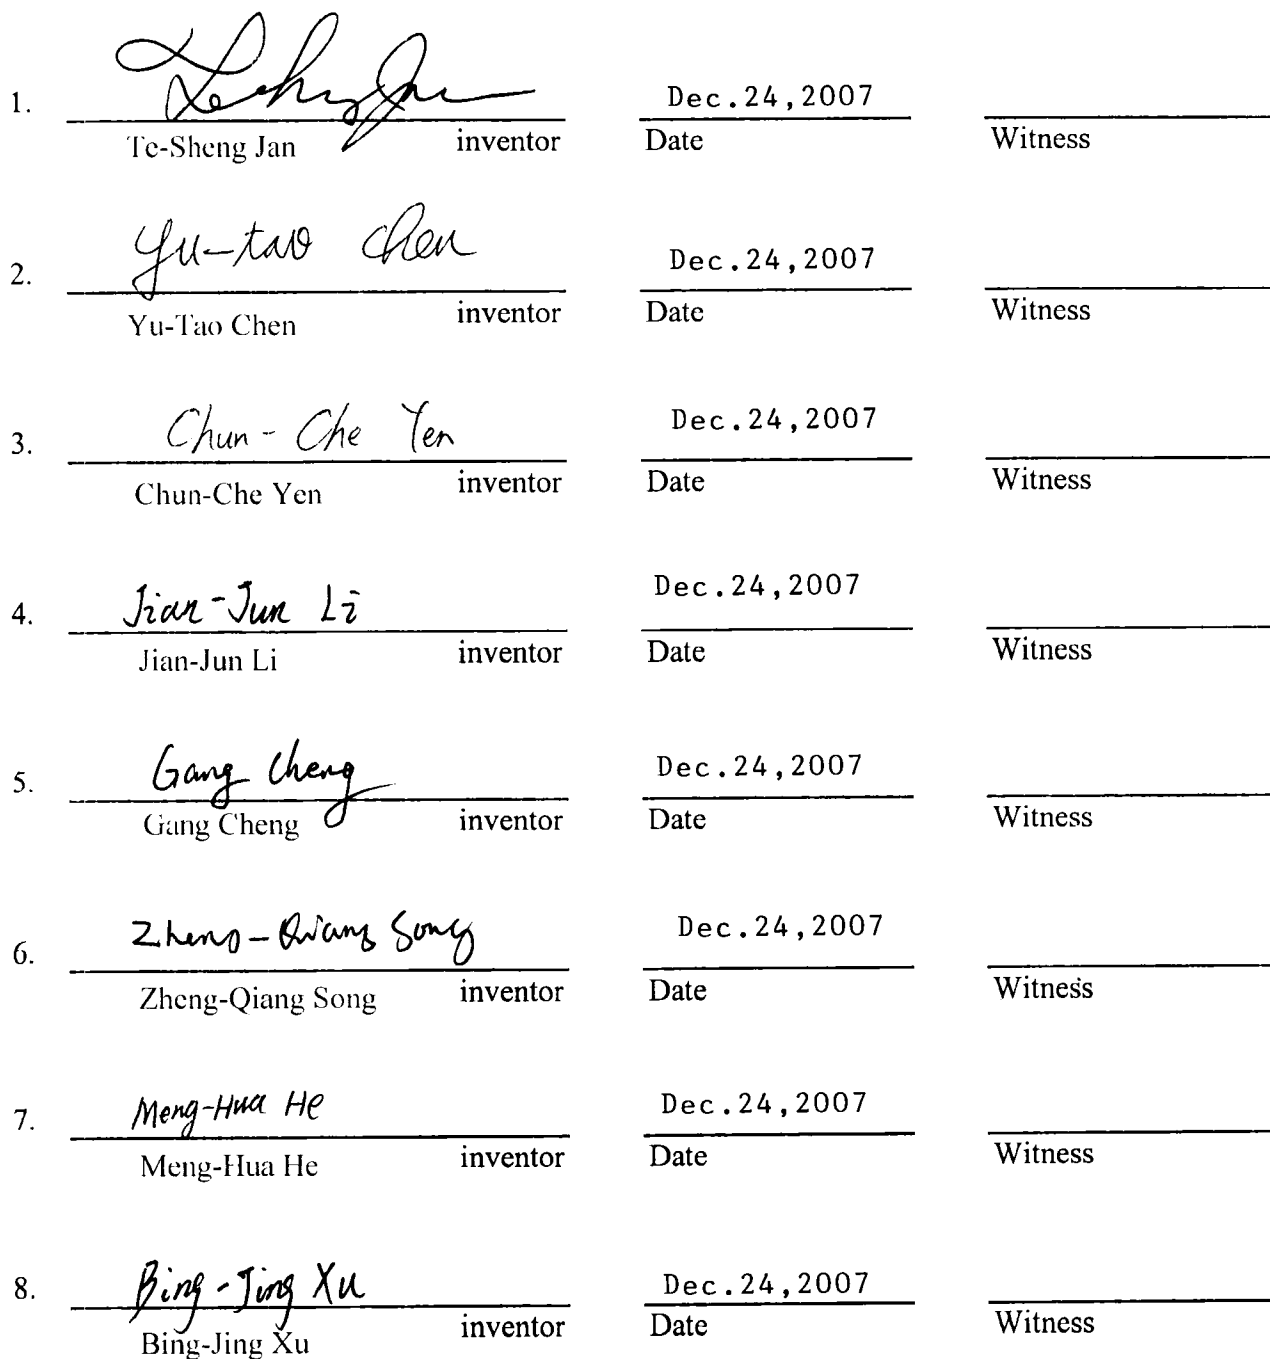 1. Te-Sheng Jan Dec.24,2007
Te-Sheng Jan inventor Date Witness
2. Yu-tao Chen Dec.24,2007
Yu-Tao Chen inventor Date Witness
3. Chun-Che Yen Dec.24,2007
Chun-Che Yen inventor Date Witness
4. Jian-Jun Li Dec.24,2007
Jian-Jun Li inventor Date Witness
5. Gang Cheng Dec.24,2007
Gang Cheng inventor Date Witness
6. Zheng-Qiang Song Dec.24,2007
Zheng-Qiang Song inventor Date Witness
7. Meng-Hua He Dec.24,2007
Meng-Hua He inventor Date Witness
8. Bing-Jing Xu Dec.24,2007
Bing-Jing Xu inventor Date Witness